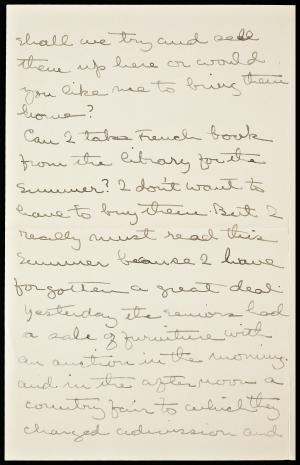 shall we try and sell
them up here or would
you like me to bring them
home?
Can I take French book
from the library for the
summer? I don't want to
have to buy them. But I
really must read this
summer because I have
forgotten a great deal.
Yesterday the seniors had
a sale of furniture with
an auction in the morning.
and in the afternoon a
country fair to which they
charged admission and